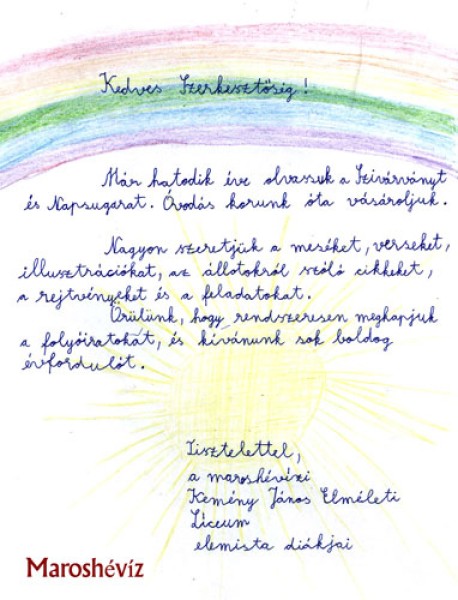 Kedves Szerkesztőség!
Már hatodik éve olvassuk a Szivárványt
és Napsugarat. Óvodás korunk óta vásároljuk.
Nagyon szeretjük a meséket, verseket,
illusztrációkat, az állatokról szóló cikkeket,
a rejtvényeket és a feladatokat.
Örülünk, hogy rendszeresen megkapjuk
a folyóiratokat, és kívánunk sok boldog
évfordulót.
Tisztelettel,
a maroshévízi
Kemény János Elméleti
Líceum
elemista diákjai
Maroshévíz